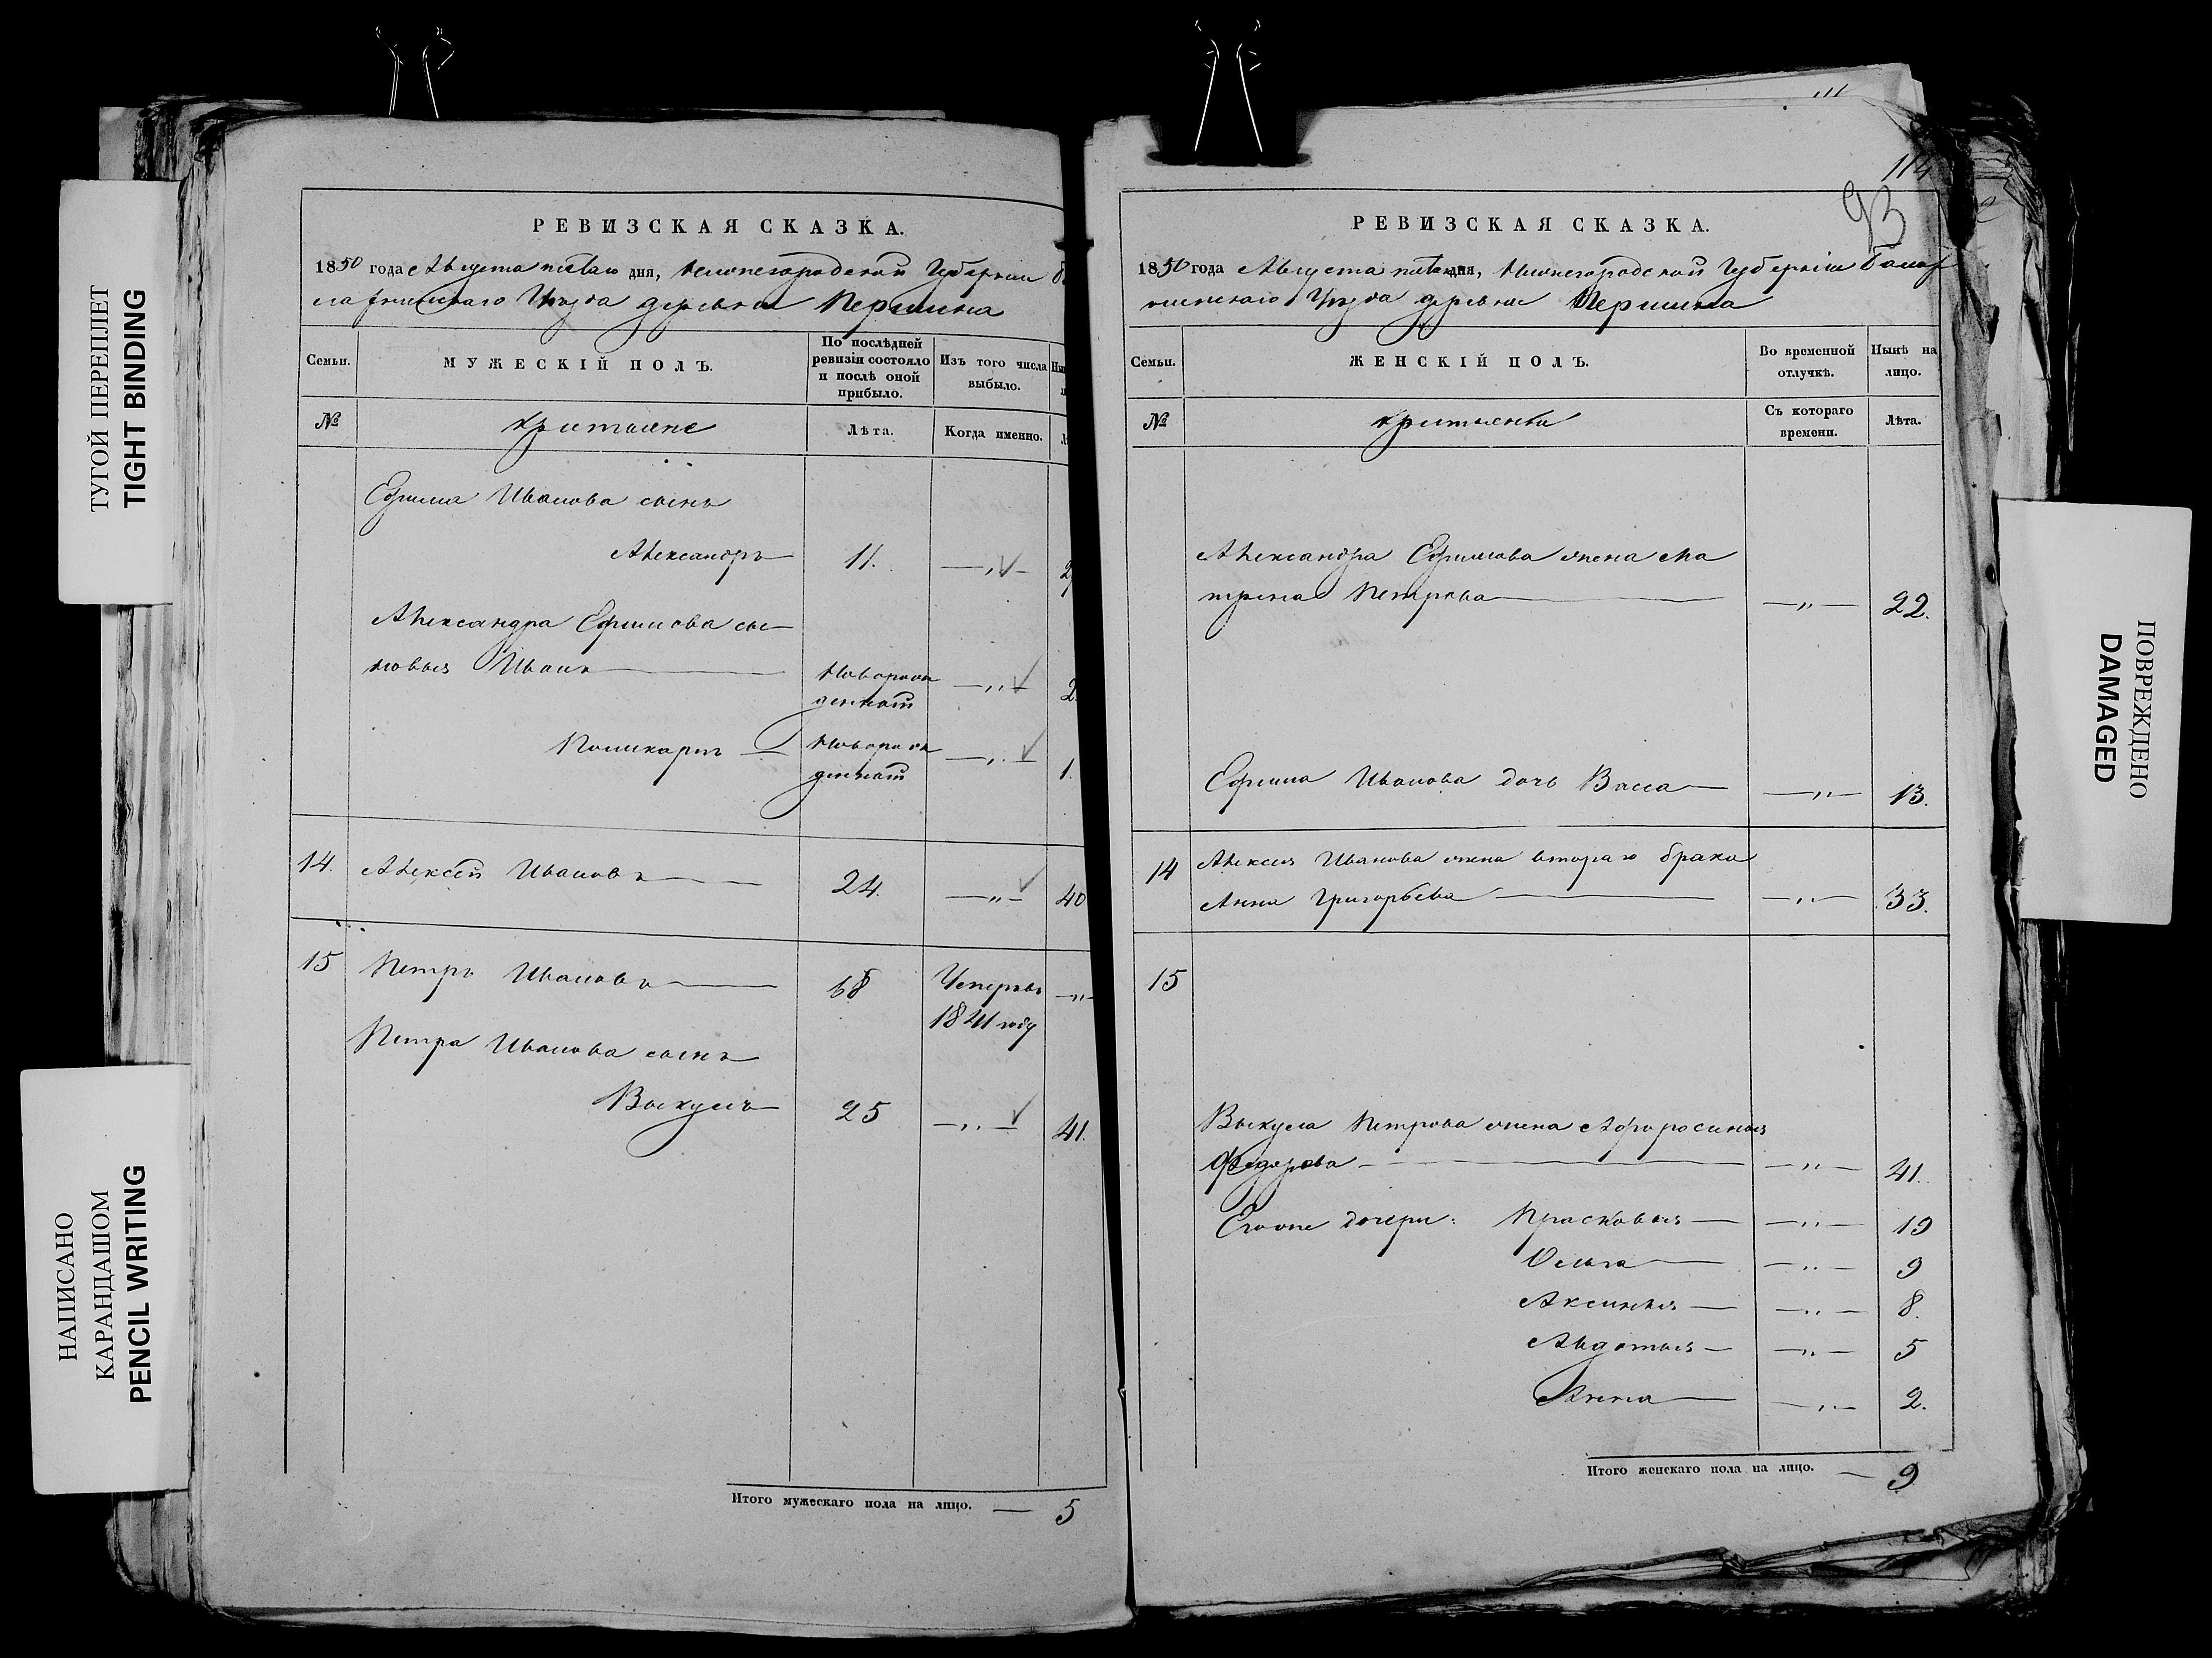 ТУГОЙ ПЕРЕПЛЕТ
TIGHT BINDING
НАПИСАНО
КАРАНДАШОМ
PENCIL WRITING
РЕВИЗСКАЯ СКАЗКА.
1850 года Августа дня, Нижегородской Губернии
Уѣзда деревни Першина
Семьи. МУЖЕСКІЙ ПОЛЪ. По послѣдней ревизіи состояло и послѣ оной прибыло. Изъ того числа выбыло.
№ Лѣта. Когда именно.
Ефима Иванова сынъ
Александръ 11. —„—
Александра Ефимова сы-
новья Иванъ Новорож
денной —„— 2
Поликарпъ Новорож
денной —„— 1.
14. Алексѣй Ивановъ 24. —„— 40
15 Петръ Ивановъ 68 Умеръ въ —„—
1841 году
Петра Иванова сынъ
Викулъ 25 —„— 41.
Итого мужескаго пола на лицо. — 5
111
114
93
РЕВИЗСКАЯ СКАЗКА.
1850 года Августа дня, Нижегородской Губерніи Балах
нинскаго Уѣзда деревни Першина
Семьи. ЖЕНСКІЙ ПОЛЪ. Во временной отлучкѣ. Нынѣ на лицо.
№ Съ котораго времени. Лѣта.
Александра Ефимова жена Ма
трена Петрова —„— 22.
Ефима Иванова дочь Васса —„— 13.
14 Алексея Иванова жена втораго брака
Анна Григорьева —„— 33.
15
Викула Петрова жена Афросинья
Федорова —„— 41.
Егоже дочери: Прасковья —„— 19
Ольга —„— 9
Аксинья —„— 8.
Авдотья —„— 5
Анна —„— 2.
Итого женскаго пола на лицо. — 9
ПОВРЕЖДЕНО
DAMAGED